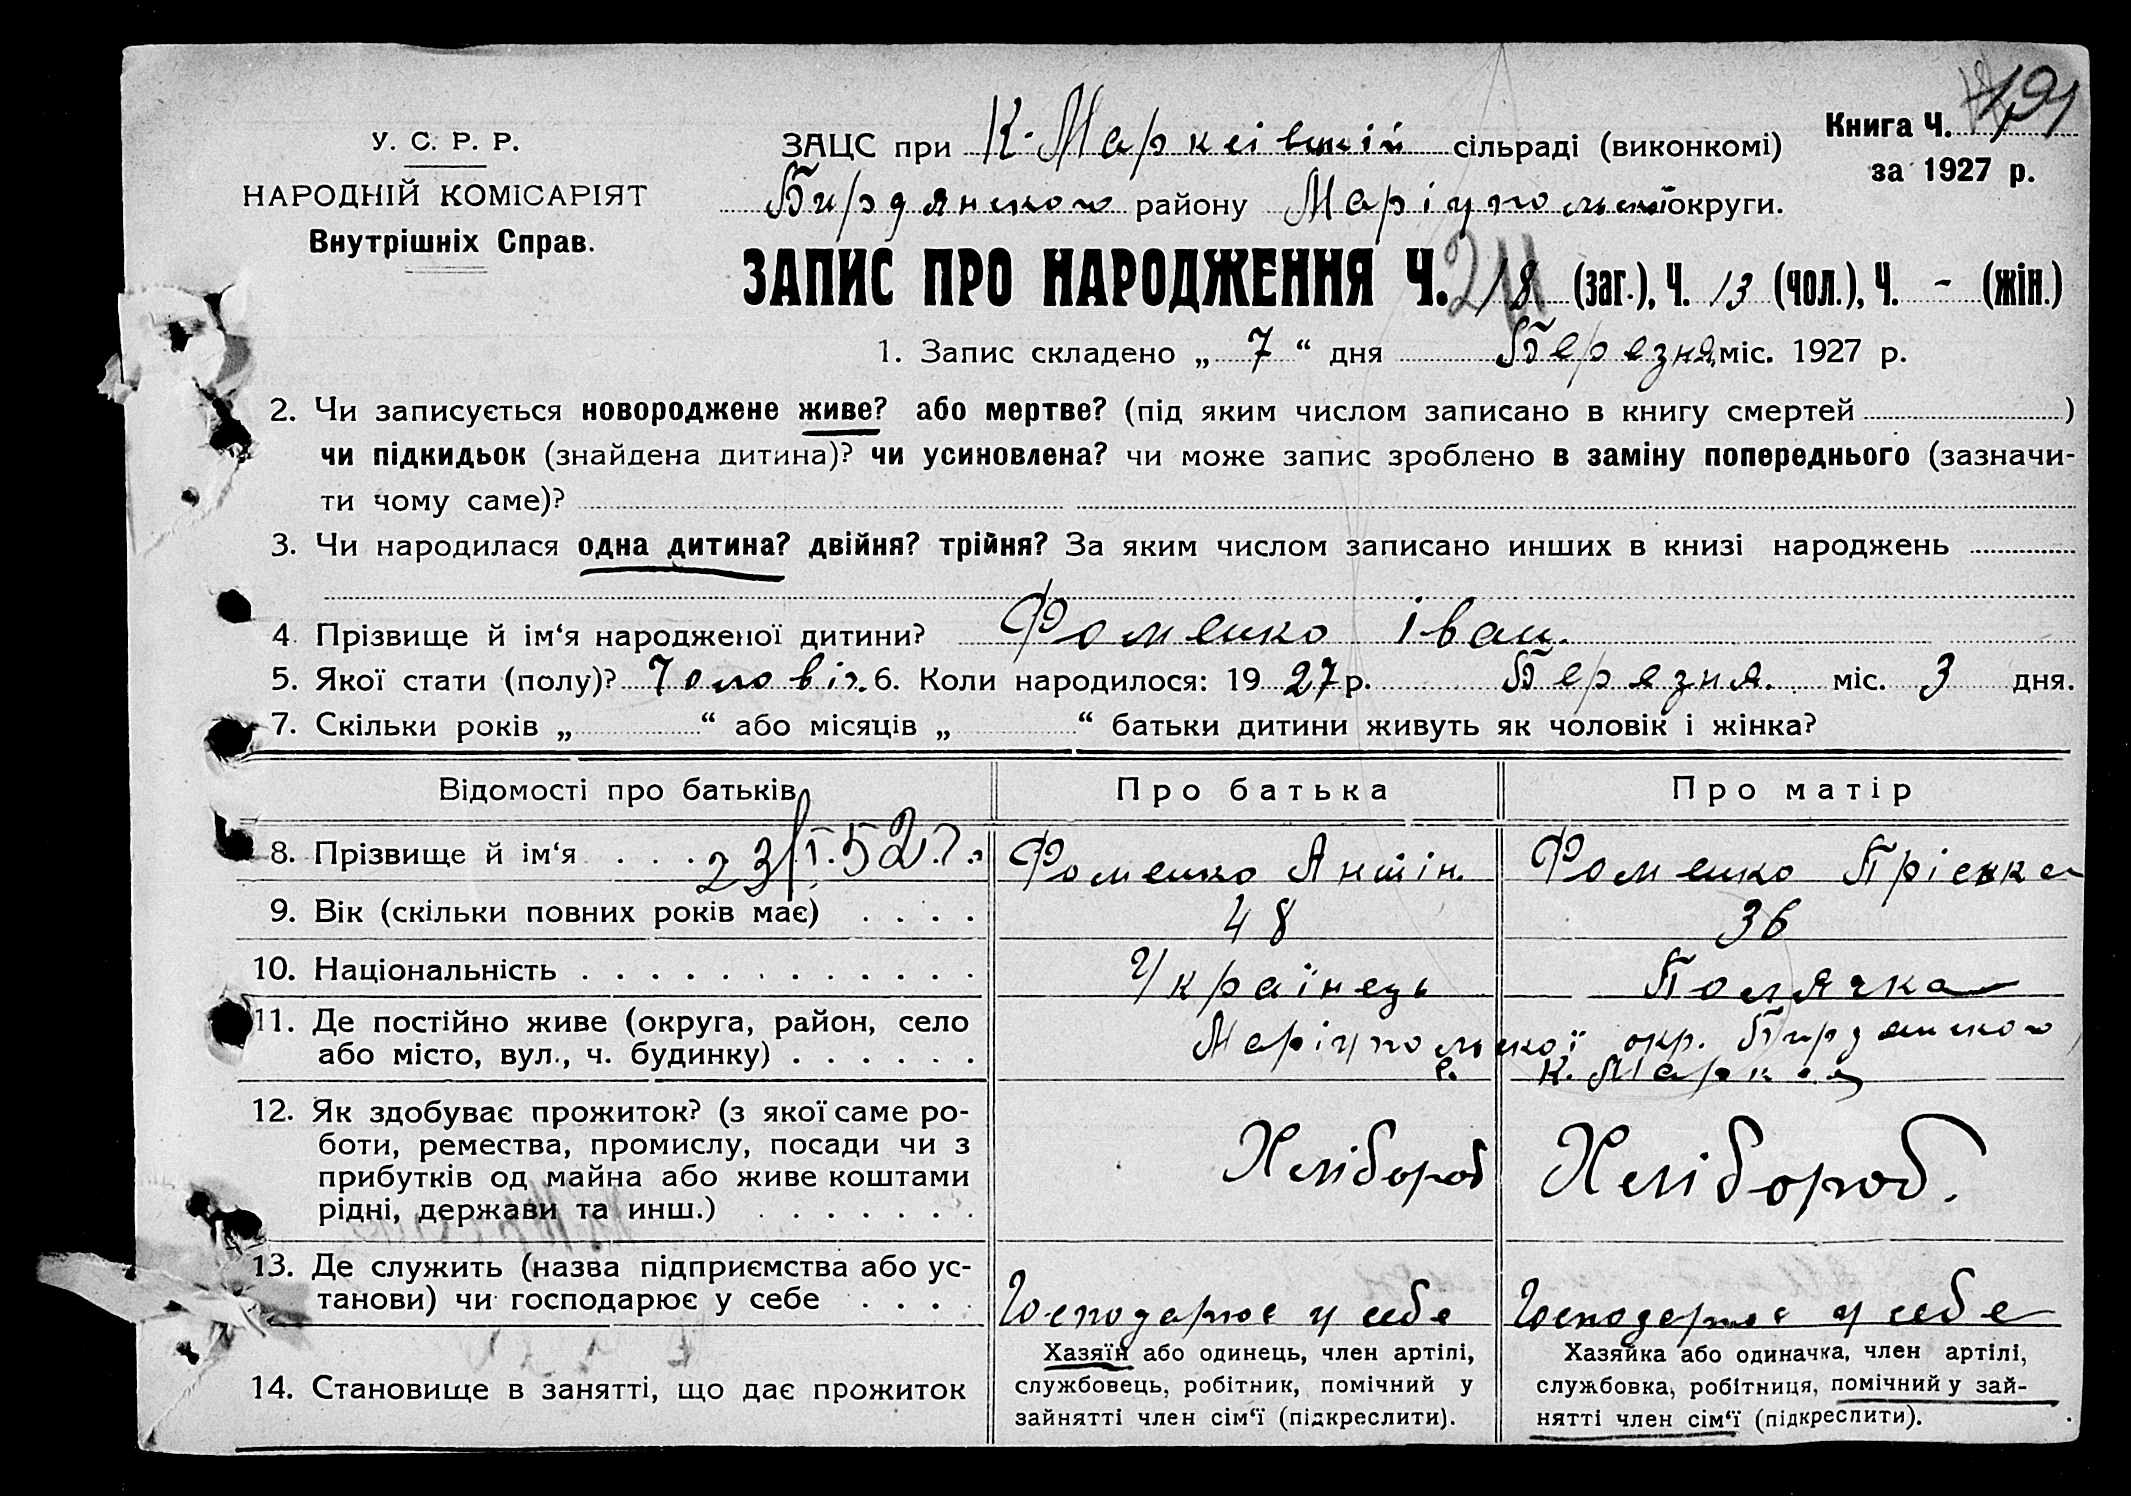 191
У. С. Р. Р.
НАРОДНІЙ КОМІСАРІЯТ
Внутрішніх Справ.
ЗАЦС при К-Марксівській сільраді (виконкомі)
Книга Ч.
за 1927 р.
Бирдянського району Маріупольської округи.
ЗАПИС ПРО НАРОДЖЕННЯ Ч. 18 (заг.), Ч. 13 (чол.), Ч. - (жін.)
1. Запис складено „ 7 “ дня Березня міс. 1927 р.
2. Чи записується новороджене живе? або мертве? (під яким числом записано в книгу смертей )
чи підкидьок (знайдена дитина)? чи усиновлена? чи може запис зроблено в заміну попереднього (зазначи-
ти чому саме)?
3. Чи народилася одна дитина? двійня? трійня? За яким числом записано инших в книзі народжень
4. Прізвище й ім‘я народженої дитини? Фоменко Іван.
5. Якої стати (полу)? Чоловіч. 6. Коли народилося: 1927 р. Березня. міс. 3 дня.
7. Скільки років „ “ або місяців „ “ батьки дитини живуть як чоловік і жінка?
Відомості про батьків Про батька Про матір
8. Прізвище й ім‘я . . . 23/I.52 Фоменко Антін. Фоменко
9. Вік (скільки повних років має) . . . . 48 36
10. Національність . . . . . . . . . . . . Українець Полячка
11. Де постійно живе (округа, район, село Маріупольської окр. Бирдянського
або місто, вул., ч. будинку) . . . . . . с. К. Маркса
12. Як здобуває прожиток? (з якої саме ро-
боти, ремества, промислу, посади чи з Хлібороб Хлібороб.
прибутків од майна або живе коштами
рідні, держави та инш.) . . . . . . .
13. Де служить (назва підприємства або ус-
танови) чи господарює у себе . . . . Господарює у себе Господарює у себе
14. Становище в занятті, що дає прожиток
Хазяїн або одинець, член артілі,
службовець, робітник, помічний у
зайнятті член сім‘ї (підкреслити).
Хазяйка або одиначка, член артілі,
службовка, робітниця, помічний у зай-
нятті член сім‘ї (підкреслити).